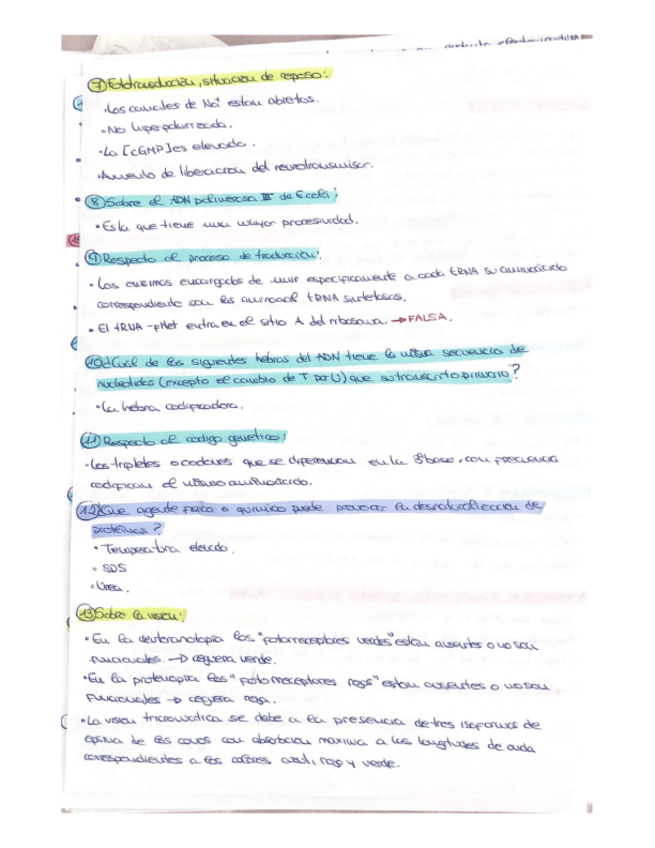 ⑦ Fototransducción, situación de reposo:
· Los canales de Na⁺ están abiertos.
· No hiperpolarizada.
· La [cGMP] es elevada.
· Aumento de liberación del neurotransmisor.
⑧ Sobre el ADN polimerasa III de E.coli:
· Es la que tiene una mayor procesividad.
⑨ Respecto al proceso de traducción:
· Los enzimas encargados de unir específicamente a cada tRNA su aminoácido
correspondiente son las aminoacil tRNA sintetasas.
· El tRNA-fMet entra en el sitio A del ribosoma. → FALSA.
⑩ ¿Cuál de las siguientes hebras del ADN tiene la misma secuencia de
nucleótidos (excepto el cambio de T por U) que su transcrito primario?
· La hebra codificadora.
⑪ Respecto al código genético:
· Los tripletes o codones que se diferencian en la 3ª base, con frecuencia
codifican el mismo aminoácido.
⑫ ¿Qué agente físico o químico puede provocar la desnaturalización de
proteínas?
· Temperatura elevada.
· SDS
· Urea.
⑬ Sobre la visión:
· En la deuteranopía los "fotorreceptores verdes" están ausentes o no son
funcionales. → ceguera verde.
· En la protanopía los "fotorreceptores rojos" están ausentes o no son
funcionales → ceguera roja.
· La visión tricromática se debe a la presencia de tres isoformas de
opsina de los conos con absorción máxima a las longitudes de onda
correspondientes a los colores azul, rojo y verde.